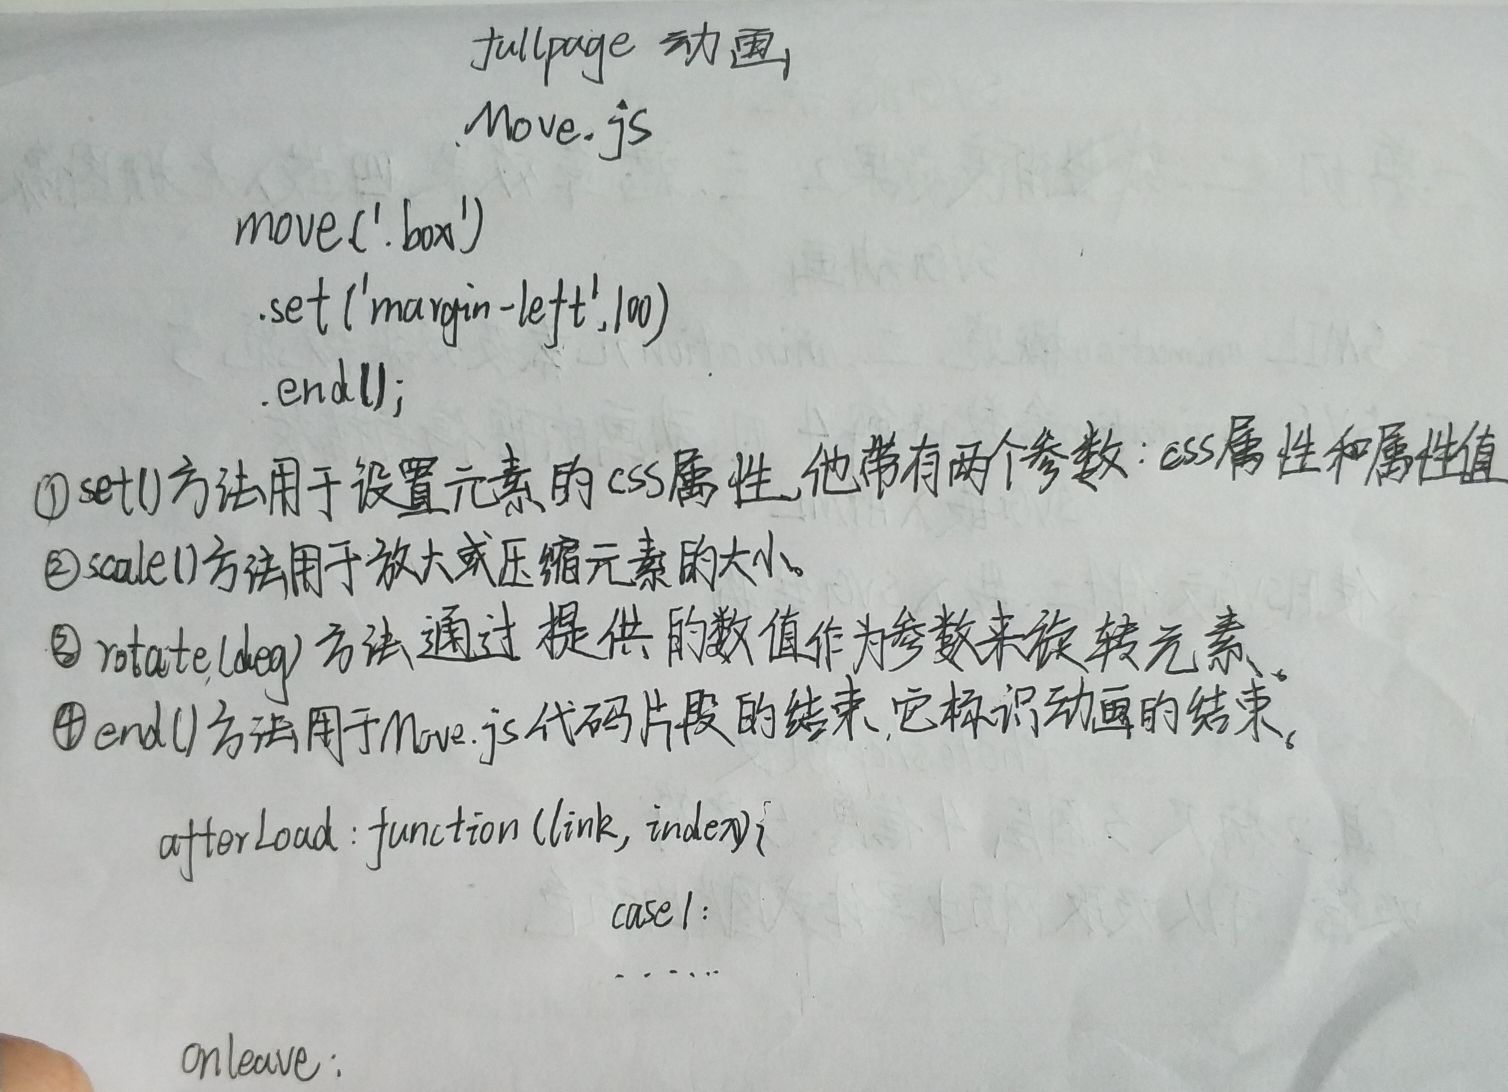 fullpage 动画
Move.js
move('.box')
.set('margin-left',100)
.end();
①set()方法用于设置元素的css属性,他带有两个参数:css属性和属性值
②scale()方法用于放大或压缩元素的大小。
③rotate(deg)方法通过提供的数值作为参数来旋转元素。
④end()方法用于Move.js代码片段的结束,它标识动画的结束。
afterLoad:function(link,index){
case1:
......
onleave: